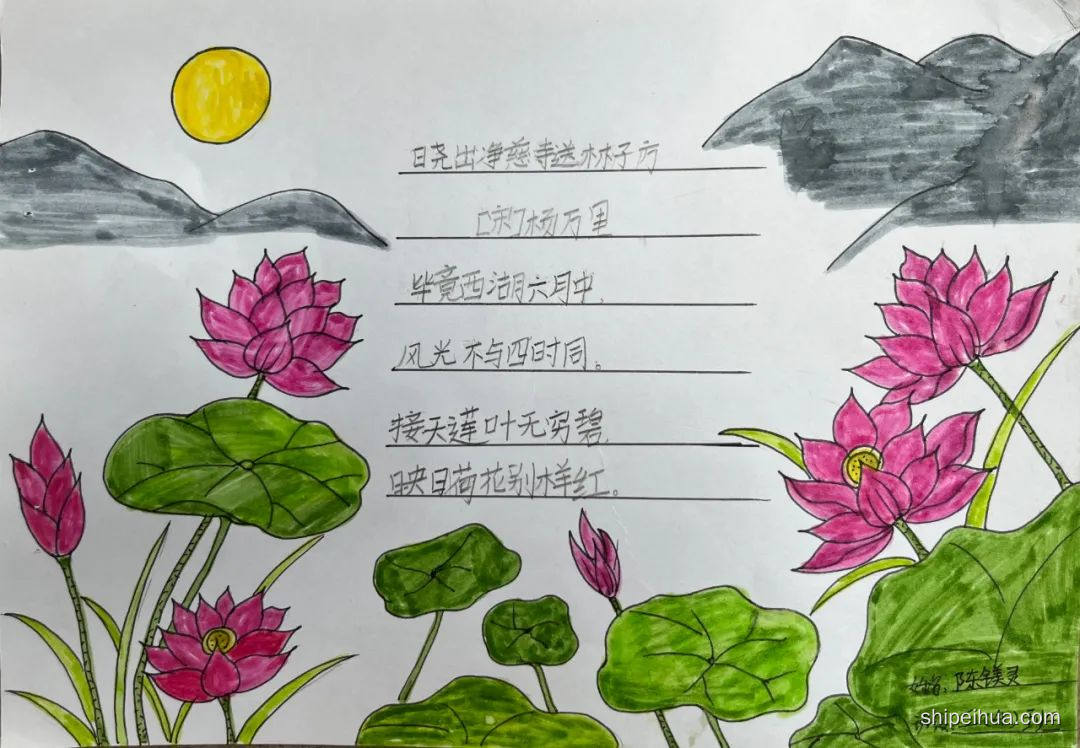 日尧出净慈寺送林子方
[宋]杨万里
毕竟西湖六月中,
风光不与四时同。
接天莲叶无穷碧
映日荷花别样红。
姓名:陈镁灵
shipeihua.com